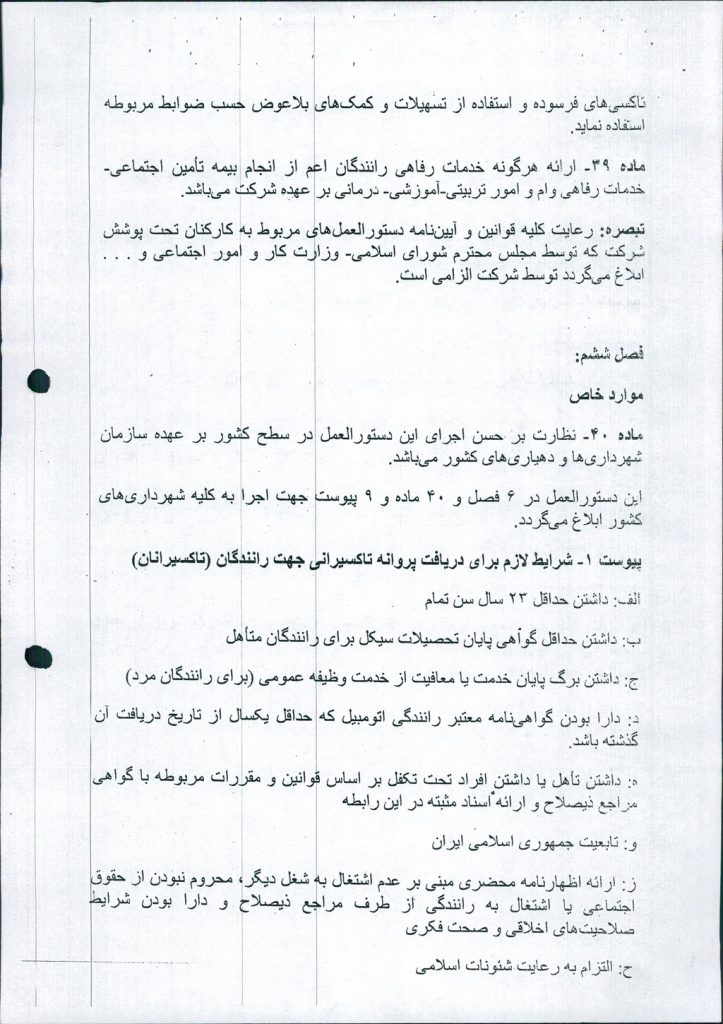 تاکسی‌های فرسوده و استفاده از تسهیلات و کمک‌های بلاعوض حسب ضوابط مربوطه
استفاده نماید.
ماده ۳۹- ارائه هرگونه خدمات رفاهی رانندگان اعم از انجام بیمه تأمین اجتماعی-
خدمات رفاهی وام و امور تربیتی-آموزشی- درمانی بر عهده شرکت می‌باشد.
تبصره: رعایت کلیه قوانین و آیین‌نامه دستورالعمل‌های مربوط به کارکنان تحت پوشش
شرکت که توسط مجلس محترم شورای اسلامی- وزارت کار و امور اجتماعی و . . .
ابلاغ می‌گردد توسط شرکت الزامی است.
فصل ششم:
موارد خاص
ماده ۴۰- نظارت بر حسن اجرای این دستورالعمل در سطح کشور بر عهده سازمان
شهرداری‌ها و دهیاری‌های کشور می‌باشد.
این دستورالعمل در ۶ فصل و ۴۰ ماده و ۹ پیوست جهت اجرا به کلیه شهرداری‌های
کشور ابلاغ می‌گردد.
پیوست ۱- شرایط لازم برای دریافت پروانه تاکسیرانی جهت رانندگان (تاکسیرانان)
الف: داشتن حداقل ۲۳ سال سن تمام
ب: داشتن حداقل گواهی پایان تحصیلات سیکل برای رانندگان متأهل
ج: داشتن برگ پایان خدمت یا معافیت از خدمت وظیفه عمومی (برای رانندگان مرد)
د: دارا بودن گواهی‌نامه معتبر رانندگی اتومبیل که حداقل یکسال از تاریخ دریافت آن
گذشته باشد.
ه: داشتن تأهل یا داشتن افراد تحت تکفل بر اساس قوانین و مقررات مربوطه با گواهی
مراجع ذیصلاح و ارائه اسناد مثبته در این رابطه
و: تابعیت جمهوری اسلامی ایران
ز: ارائه اظهارنامه محضری مبنی بر عدم اشتغال به شغل دیگر، محروم نبودن از حقوق
اجتماعی یا اشتغال به رانندگی از طرف مراجع ذیصلاح و دارا بودن شرایط
صلاحیت‌های اخلاقی و صحت فکری
ح: التزام به رعایت شئونات اسلامی